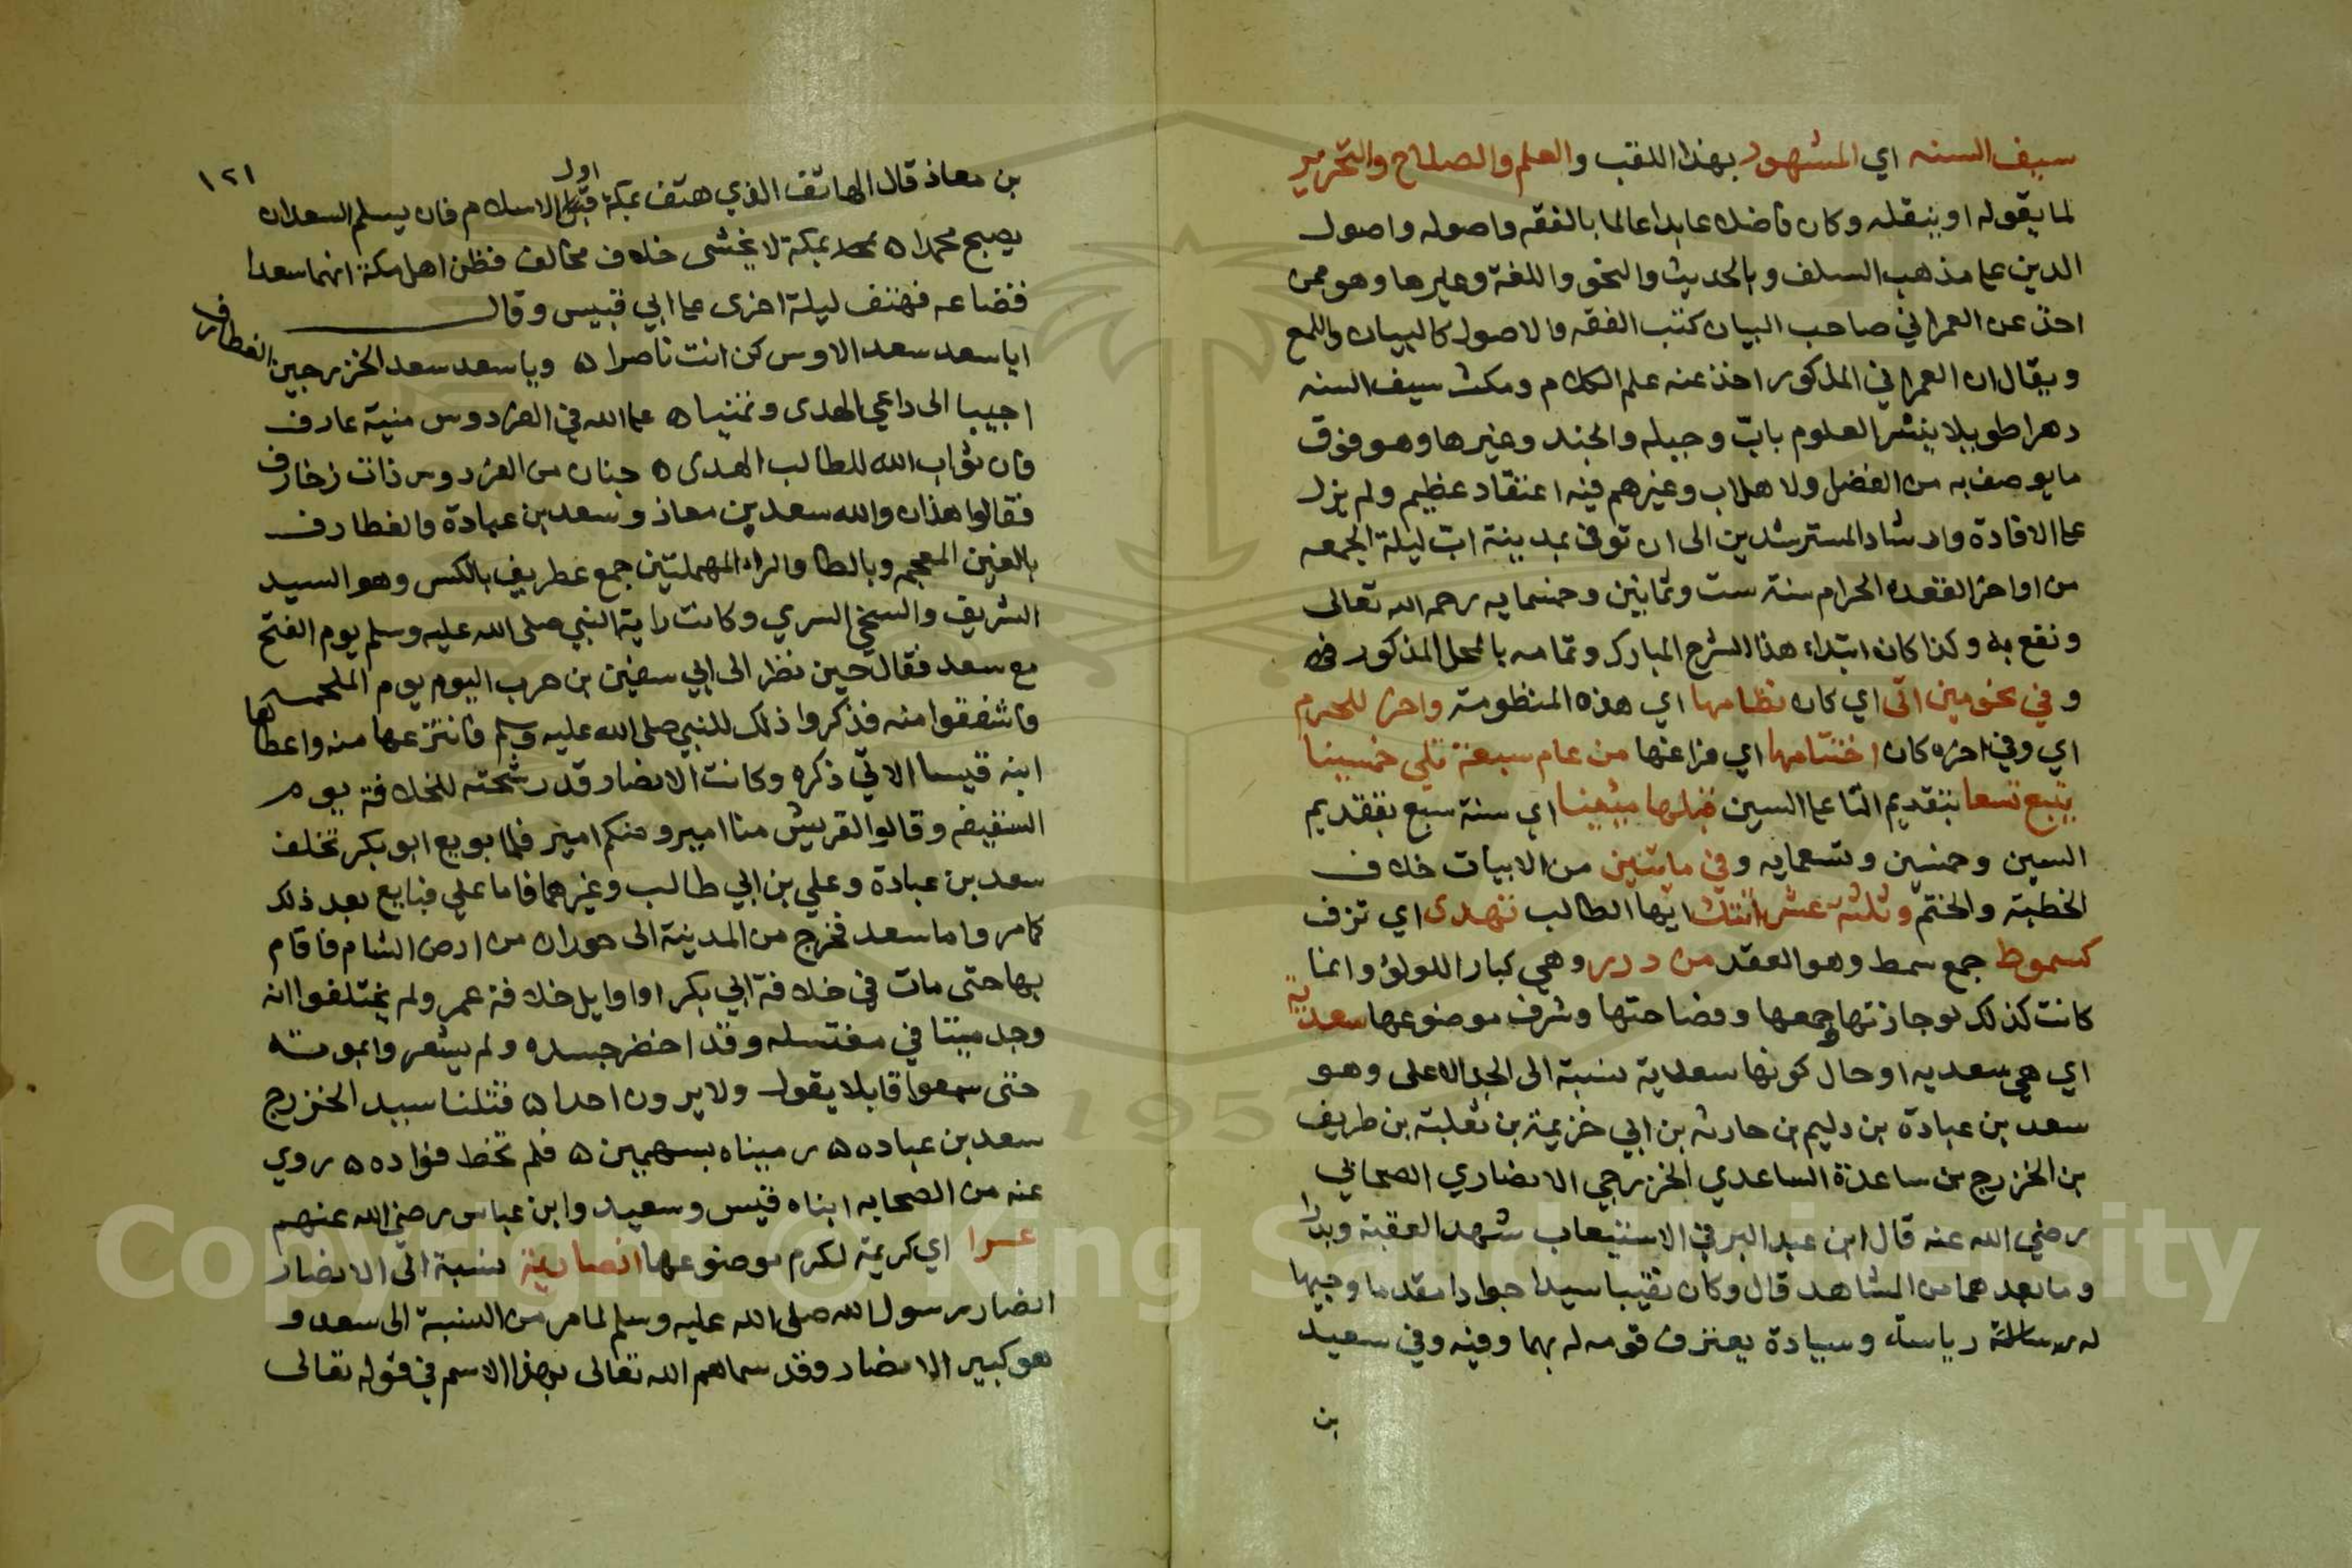 سيف السنه اي المشهور بهذا اللقب والعلم والصلاح والتحرير
لما يقوله او ينقله وكان فاضلا عابدا عالما بالفقه واصوله واصول
الدين على مذهب السلف وبالحديث والنحو واللغة وغيرها وهو ممن
اخذ عن العمراني صاحب البيان كتب الفقه والاصول كالبيان واللمع
ويقال ان العمراني المذكور اخذ عنه علم الكلام ومكث سيف السنه
دهرا طويلا ينشر العلوم باب وجبله والجند وغيرها وهو فوق
ما يوصف به من الفضل ولاهل اب وغيرهم فيه اعتقاد عظيم ولم يزل
على الافادة وارشاد المسترشدين الى ان توفى بمدينة اب ليلة الجمعه
من اواخر القعده الحرام سنة ست وثمانين وخمسمايه رحمه الله تعالى
ونفع به وكذا كان ابتداء هذا الشرح المبارك وتمامه بالمحل المذكور
وفي نحو مين اتى اي كان نظامها اي هذه المنظومة واخر للمحرم
اي وفي اخره كان اختتامها اي فراغها من عام سبعة تلي خمسينا
يتبع تسعا بتقديم التا على السين قبلها ميئينا اي سنة سبع بتقديم
السين وخمسين وتسعمايه وفي مائتين من الابيات خلاف
الخطبة والختم وثلثة عشر اتتك ايها الطالب تهدى اي تزف
كسموط جمع سمط وهو العقد من درر وهي كبار اللولؤ وانما
كانت كذلك لوجازتها وجمعها وفصاحتها وشرف موضوعها سعدية
اي هي سعديه او حال كونها سعدية نسبة الى الجد الاعلى وهو
سعد بن عبادة بن دليم بن حارثه بن ابي خزيمة بن ثعلبة بن طريف
بن الخزرج بن ساعدة الساعدي الخزرجي الانصاري الصحابي
رضي الله عنه قال ابن عبد البر في الاستيعاب شهد العقبة وبدرا
وما بعدهما من المشاهد قال وكان نقيبا سيدا جوادا مقدما وجيها
له رياسة وسيادة يعترف قومه له بهما وفيه وفي سعيد
بن
١٢١
بن معاذ قال الهاتف الذي هتف بمكة اول الاسلام فان يسلم السعدان
يصبح محمدا ه بمكة لا يخشى خلاف مخالف فظن اهل مكة انهما سعدا
قضاعه فهتف ليلة اخرى على ابي قبيس وقال
ايا سعد سعد الاوس كن انت ناصرا ه ويا سعد سعد الخزرجين الغطارف
اجيبا الى داعي الهدى وتمنيا ه على الله في الفردوس منية عارف
فان ثواب الله للطالب الهدى ه جنان من الفردوس ذات زخارف
فقالوا هذان والله سعد بن معاذ وسعد بن عبادة والغطارف
بالغين المعجم وبالطا والراء المهملتين جمع غطريف بالكسر وهو السيد
الشريف والسخي السري وكانت راية النبي صلى الله عليه وسلم يوم الفتح
مع سعد فقال حين نظر الى ابي سفين بن حرب اليوم يوم الملحمه
فاشفقوا منه فذكروا ذلك للنبي صلى الله عليه وسلم فانتزعها منه واعطاها
ابنه قيسا الاتي ذكره وكانت الانصار قد رشحته للخلافة يوم
السقيفه وقالوا لقريش منا امير ومنكم امير فلما بويع ابو بكر تخلف
سعد بن عبادة وعلي بن ابي طالب وغيرهما فاما علي فبايع بعد ذلك
كما مر واما سعد فخرج من المدينة الى حوران من ارض الشام فاقام
بها حتى مات في خلافة ابي بكر او اوايل خلافة عمر ولم يختلفوا انه
وجد ميتا في مغتسله وقد اخضر جسده ولم يشعروا بموته
حتى سمعوا قايلا يقول ولا يرون احدا ه قتلنا سيد الخزرج
سعد بن عباده ه رميناه بسهمين ه فلم تخط فواده ه روي
عنه من الصحابه ابناه قيس وسعيد وابن عباس رضي الله عنهم
غرا اي كريمة لكرم موضوعها انصارية نسبة الى الانصار
انصار رسول الله صلى الله عليه وسلم لما مر من النسبة الى سعد و
هو كبير الانصار وقد سماهم الله تعالى بهذا الاسم في قوله تعالى
Copyright © King Saud University
1957